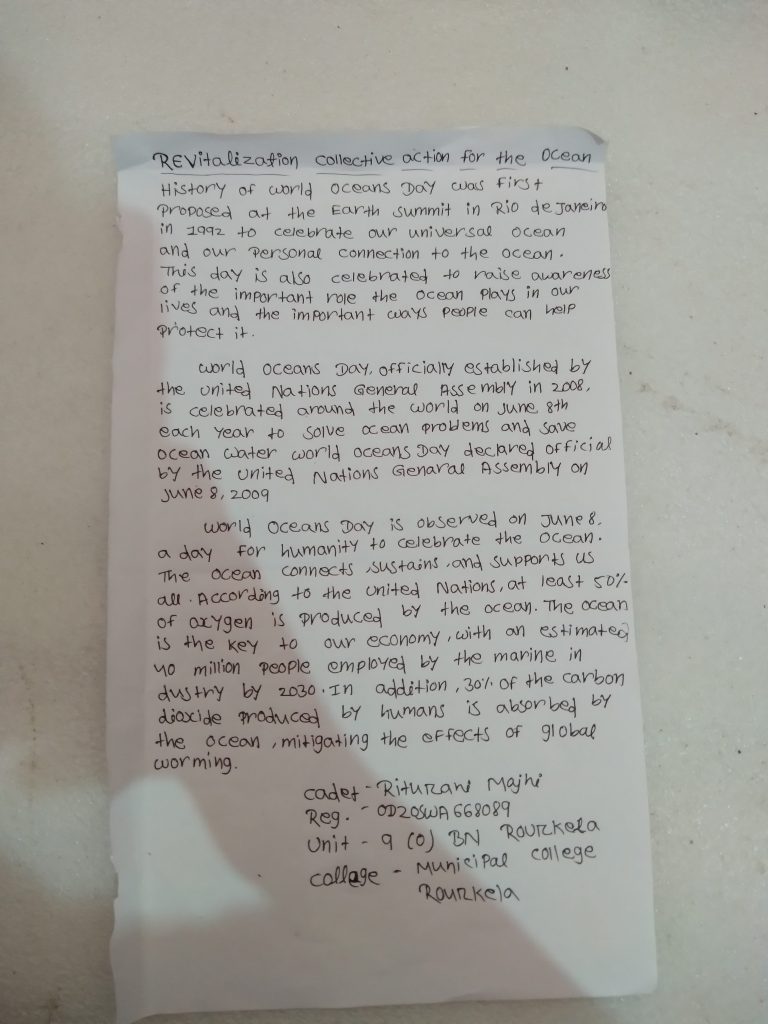 REVitalization collective action for the Ocean
History of world oceans Day was first
Proposed at the Earth summit in Rio de Janeiro
in 1992 to celebrate our universal ocean
and our Personal connection to the ocean.
This day is also celebrated to raise awareness
of the important role the ocean plays in our
lives and the important ways people can help
Protect it.
world oceans Day, officially established by
the united Nations General Assembly in 2008,
is celebrated around the world on June 8th
each year to solve ocean problems and save
ocean water world oceans Day declared official
by the united Nations Genaral Assembly on
June 8, 2009
world oceans Day is observed on June 8,
a day for humanity to celebrate the ocean.
The ocean connects, sustains, and supports us
all. According to the united Nations, at least 50%
of oxygen is produced by the ocean. The ocean
is the key to our economy, with an estimated
40 million people employed by the marine in
dustry by 2030. In addition, 30% of the carbon
dioxide produced by humans is absorbed by
the ocean, mitigating the effects of global
worming.
cadet - Riturani Majhi
Reg. - OD20SWA668089
Unit - 9 (O) BN Rourkela
collage - Municipal college
Rourkela